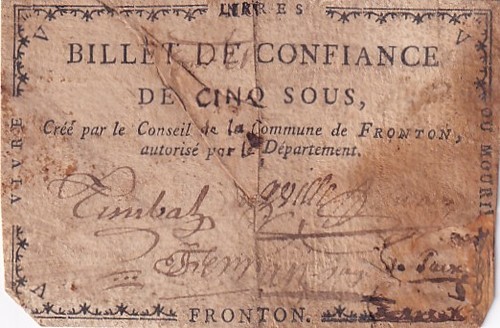 LIBRES
BILLET DE CONFIANCE
DE CINQ SOUS,
Créé par le Conseil de la Commune de FRONTON,
autorisé par le Département.
Timbal
VIVRE
OU MOURIR
FRONTON.